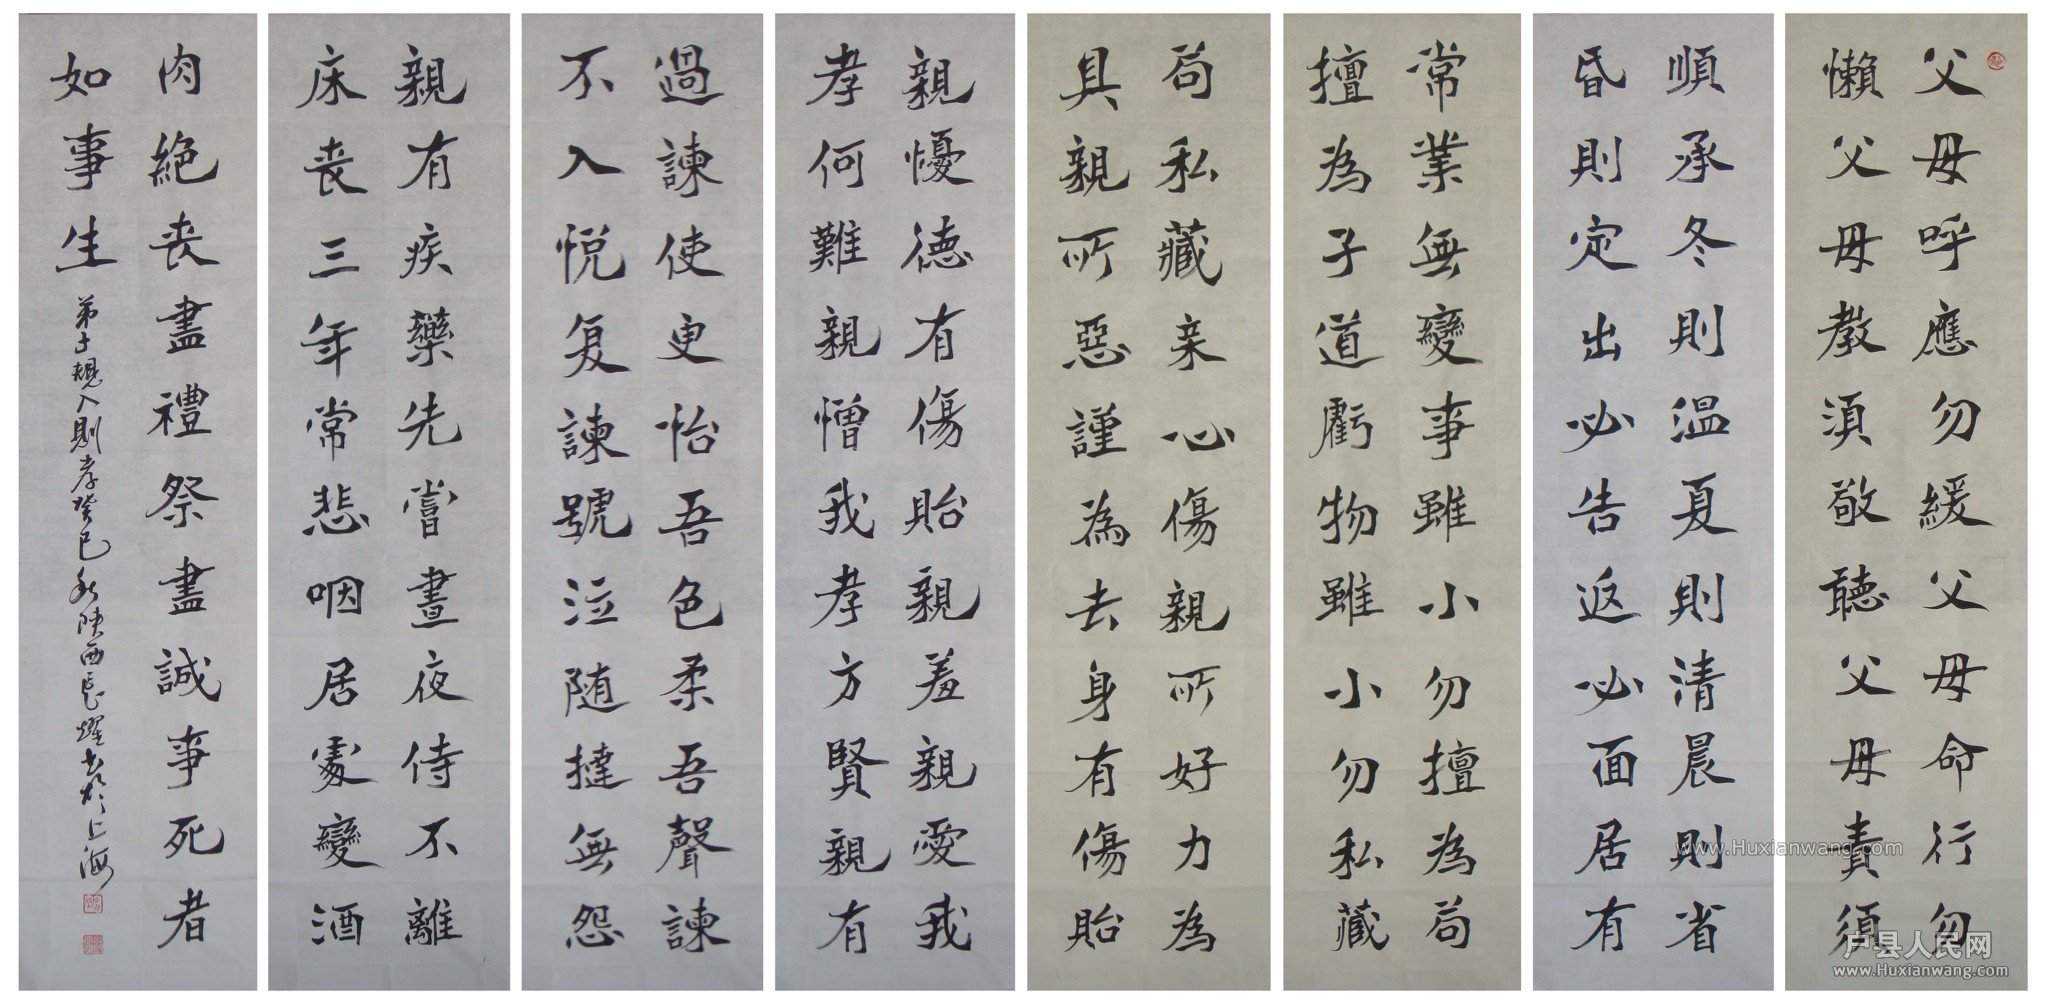 父母呼應勿緩父母命行勿
懶父母教須敬聽父母責須
順承冬則温夏則清晨則省
昏則定出必告返必面居有
常業無變事雖小勿擅為苟
擅為子道虧物雖小勿私藏
苟私藏亲心傷親所好力為
具親所惡謹為去身有傷貽
親憂德有傷貽親羞親愛我
孝何難親憎我孝方賢親有
過諫使更怡吾色柔吾聲諫
不入悦复諫號泣随撻無怨
親有疾藥先嘗晝夜侍不離
床丧三年常悲咽居處變酒
肉絕丧盡禮祭盡誠事死者
如事生
弟子規入則孝癸巳秋陝西
燿書於上海
www.Huxianwang.com
户县人民网
www.Huxianwang.com